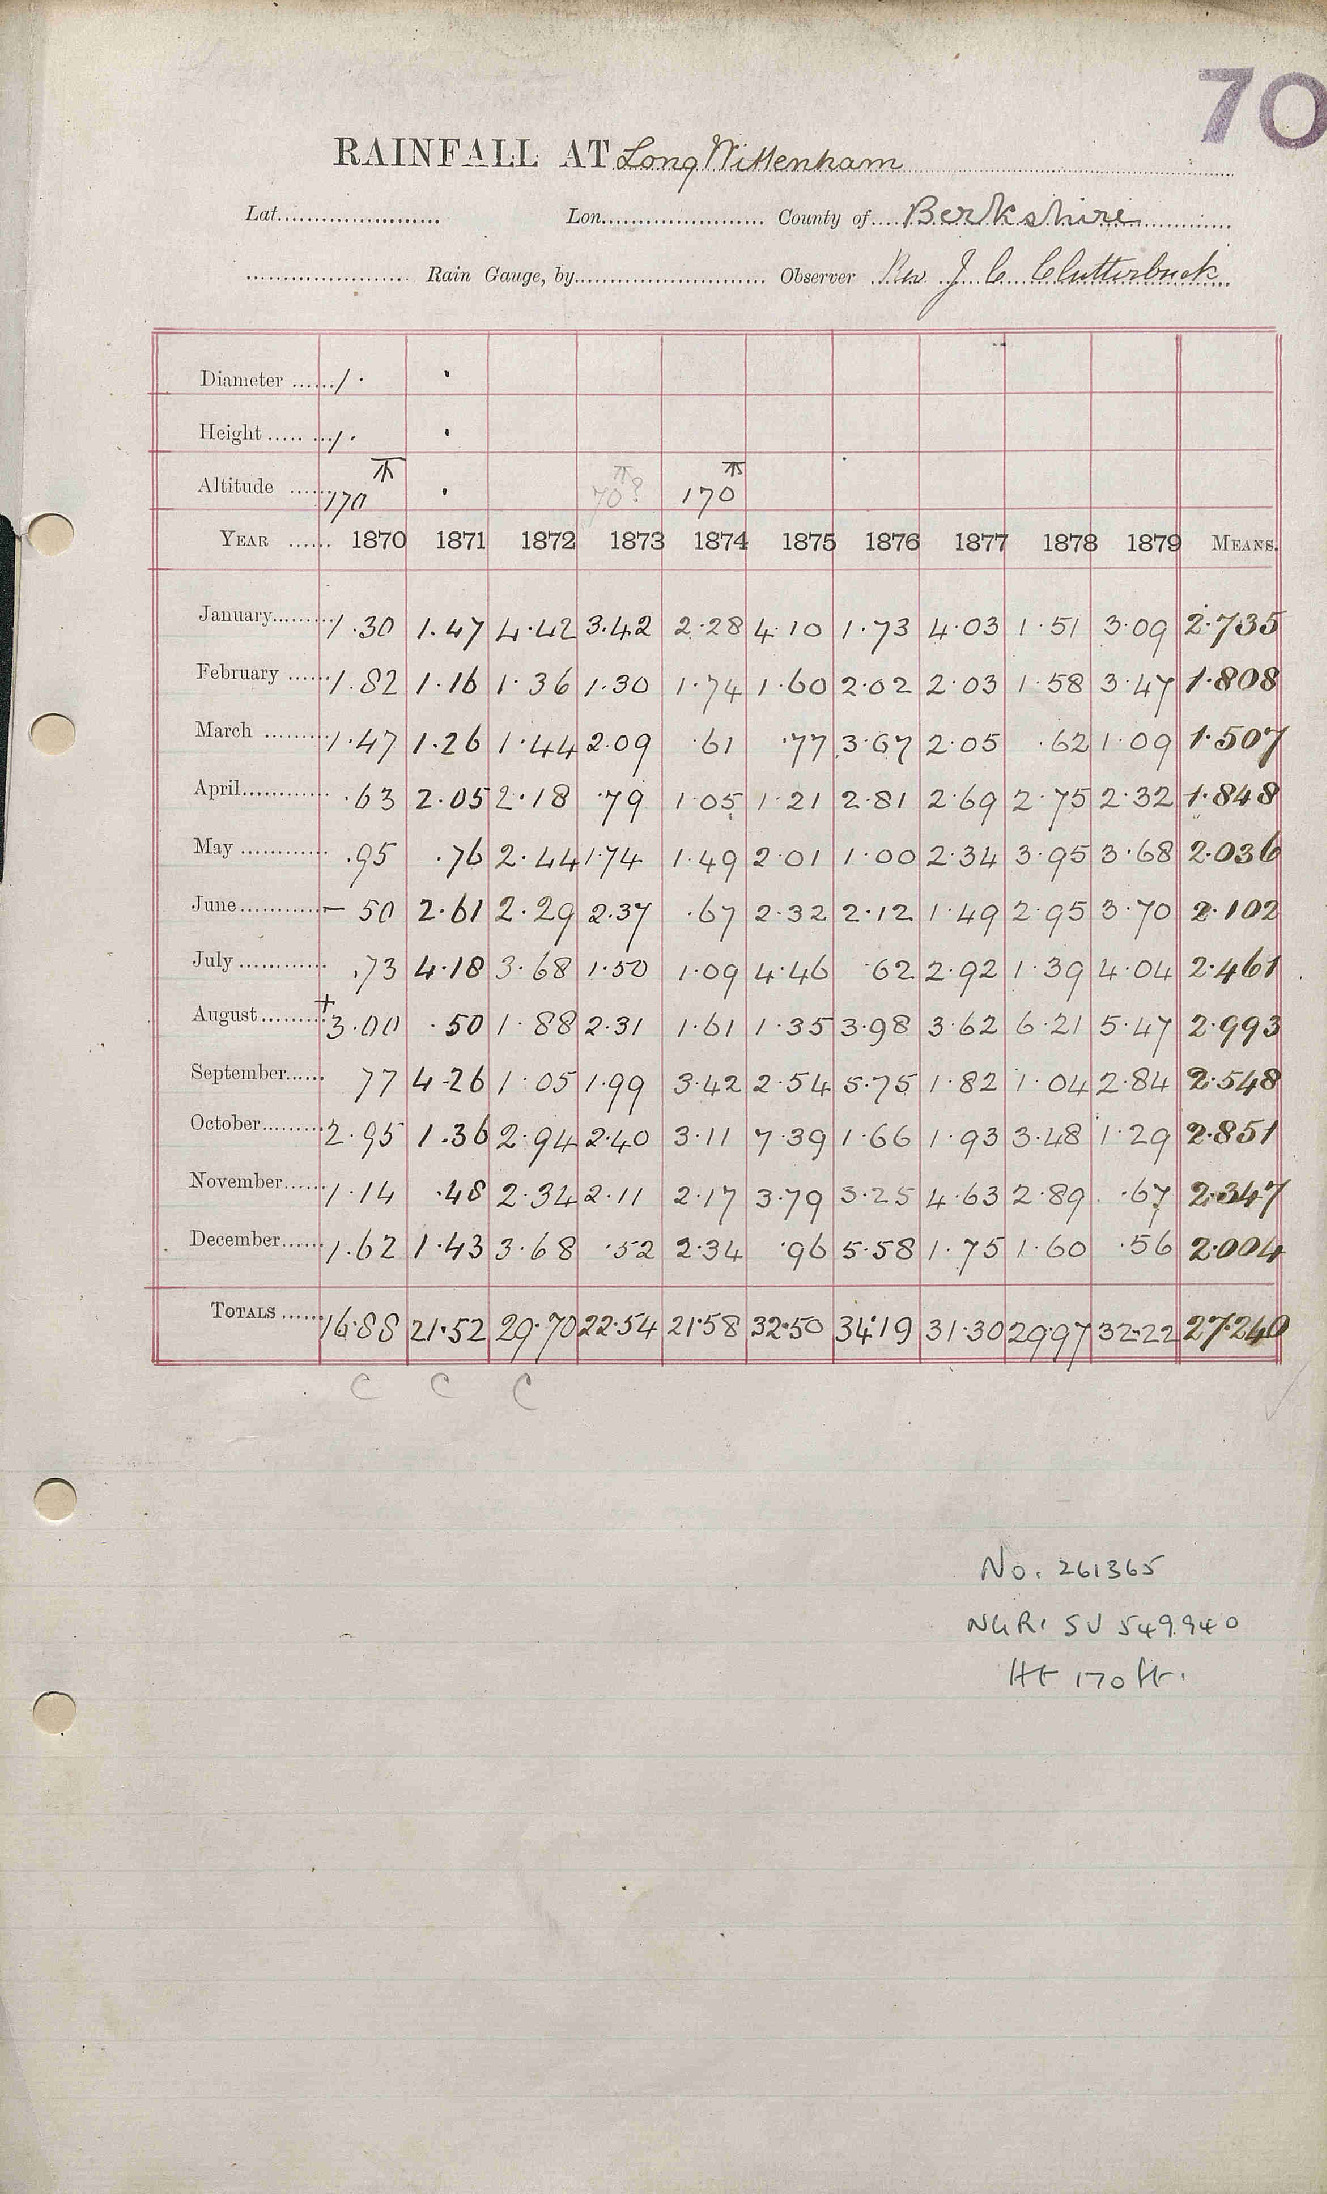 70
RAINFALL AT Long Wittenham
Lat. Lon. County of Berkshire
Rain Gauge, by Observer Rev J. C. Clutterbuck
Diameter 1·
Height 1·
Altitude 170 70? 170
YEAR 1870 1871 1872 1873 1874 1875 1876 1877 1878 1879 MEANS.
January 1·30 1·47 4·42 3·42 2·28 4·10 1·73 4·03 1·51 3·09 2·735
February 1·82 1·16 1·36 1·30 1·74 1·60 2·02 2·03 1·58 3·47 1·808
March 1·47 1·26 1·44 2·09 ·61 ·77 3·67 2·05 ·62 1·09 1·507
April ·63 2·05 2·18 ·79 1·05 1·21 2·81 2·69 2·75 2·32 1·848
May ·95 ·76 2·44 1·74 1·49 2·01 1·00 2·34 3·95 3·68 2·036
June — 50 2·61 2·29 2·37 ·67 2·32 2·12 1·49 2·95 3·70 2·102
July ·73 4·18 3·68 1·50 1·09 4·46 ·62 2·92 1·39 4·04 2·461
August + 3·00 ·50 1·88 2·31 1·61 1·35 3·98 3·62 6·21 5·47 2·993
September 77 4·26 1·05 1·99 3·42 2·54 5·75 1·82 1·04 2·84 2·548
October 2·95 1·36 2·94 2·40 3·11 7·39 1·66 1·93 3·48 1·29 2·851
November 1·14 ·48 2·34 2·11 2·17 3·79 3·25 4·63 2·89 ·67 2·347
December 1·62 1·43 3·68 ·52 2·34 ·96 5·58 1·75 1·60 ·56 2·004
TOTALS 16·88 21·52 29·70 22·54 21·58 32·50 34·19 31·30 29·97 32·22 27·240
C C C
No. 261365
NGR. SU 549940
Ht 170 ft.